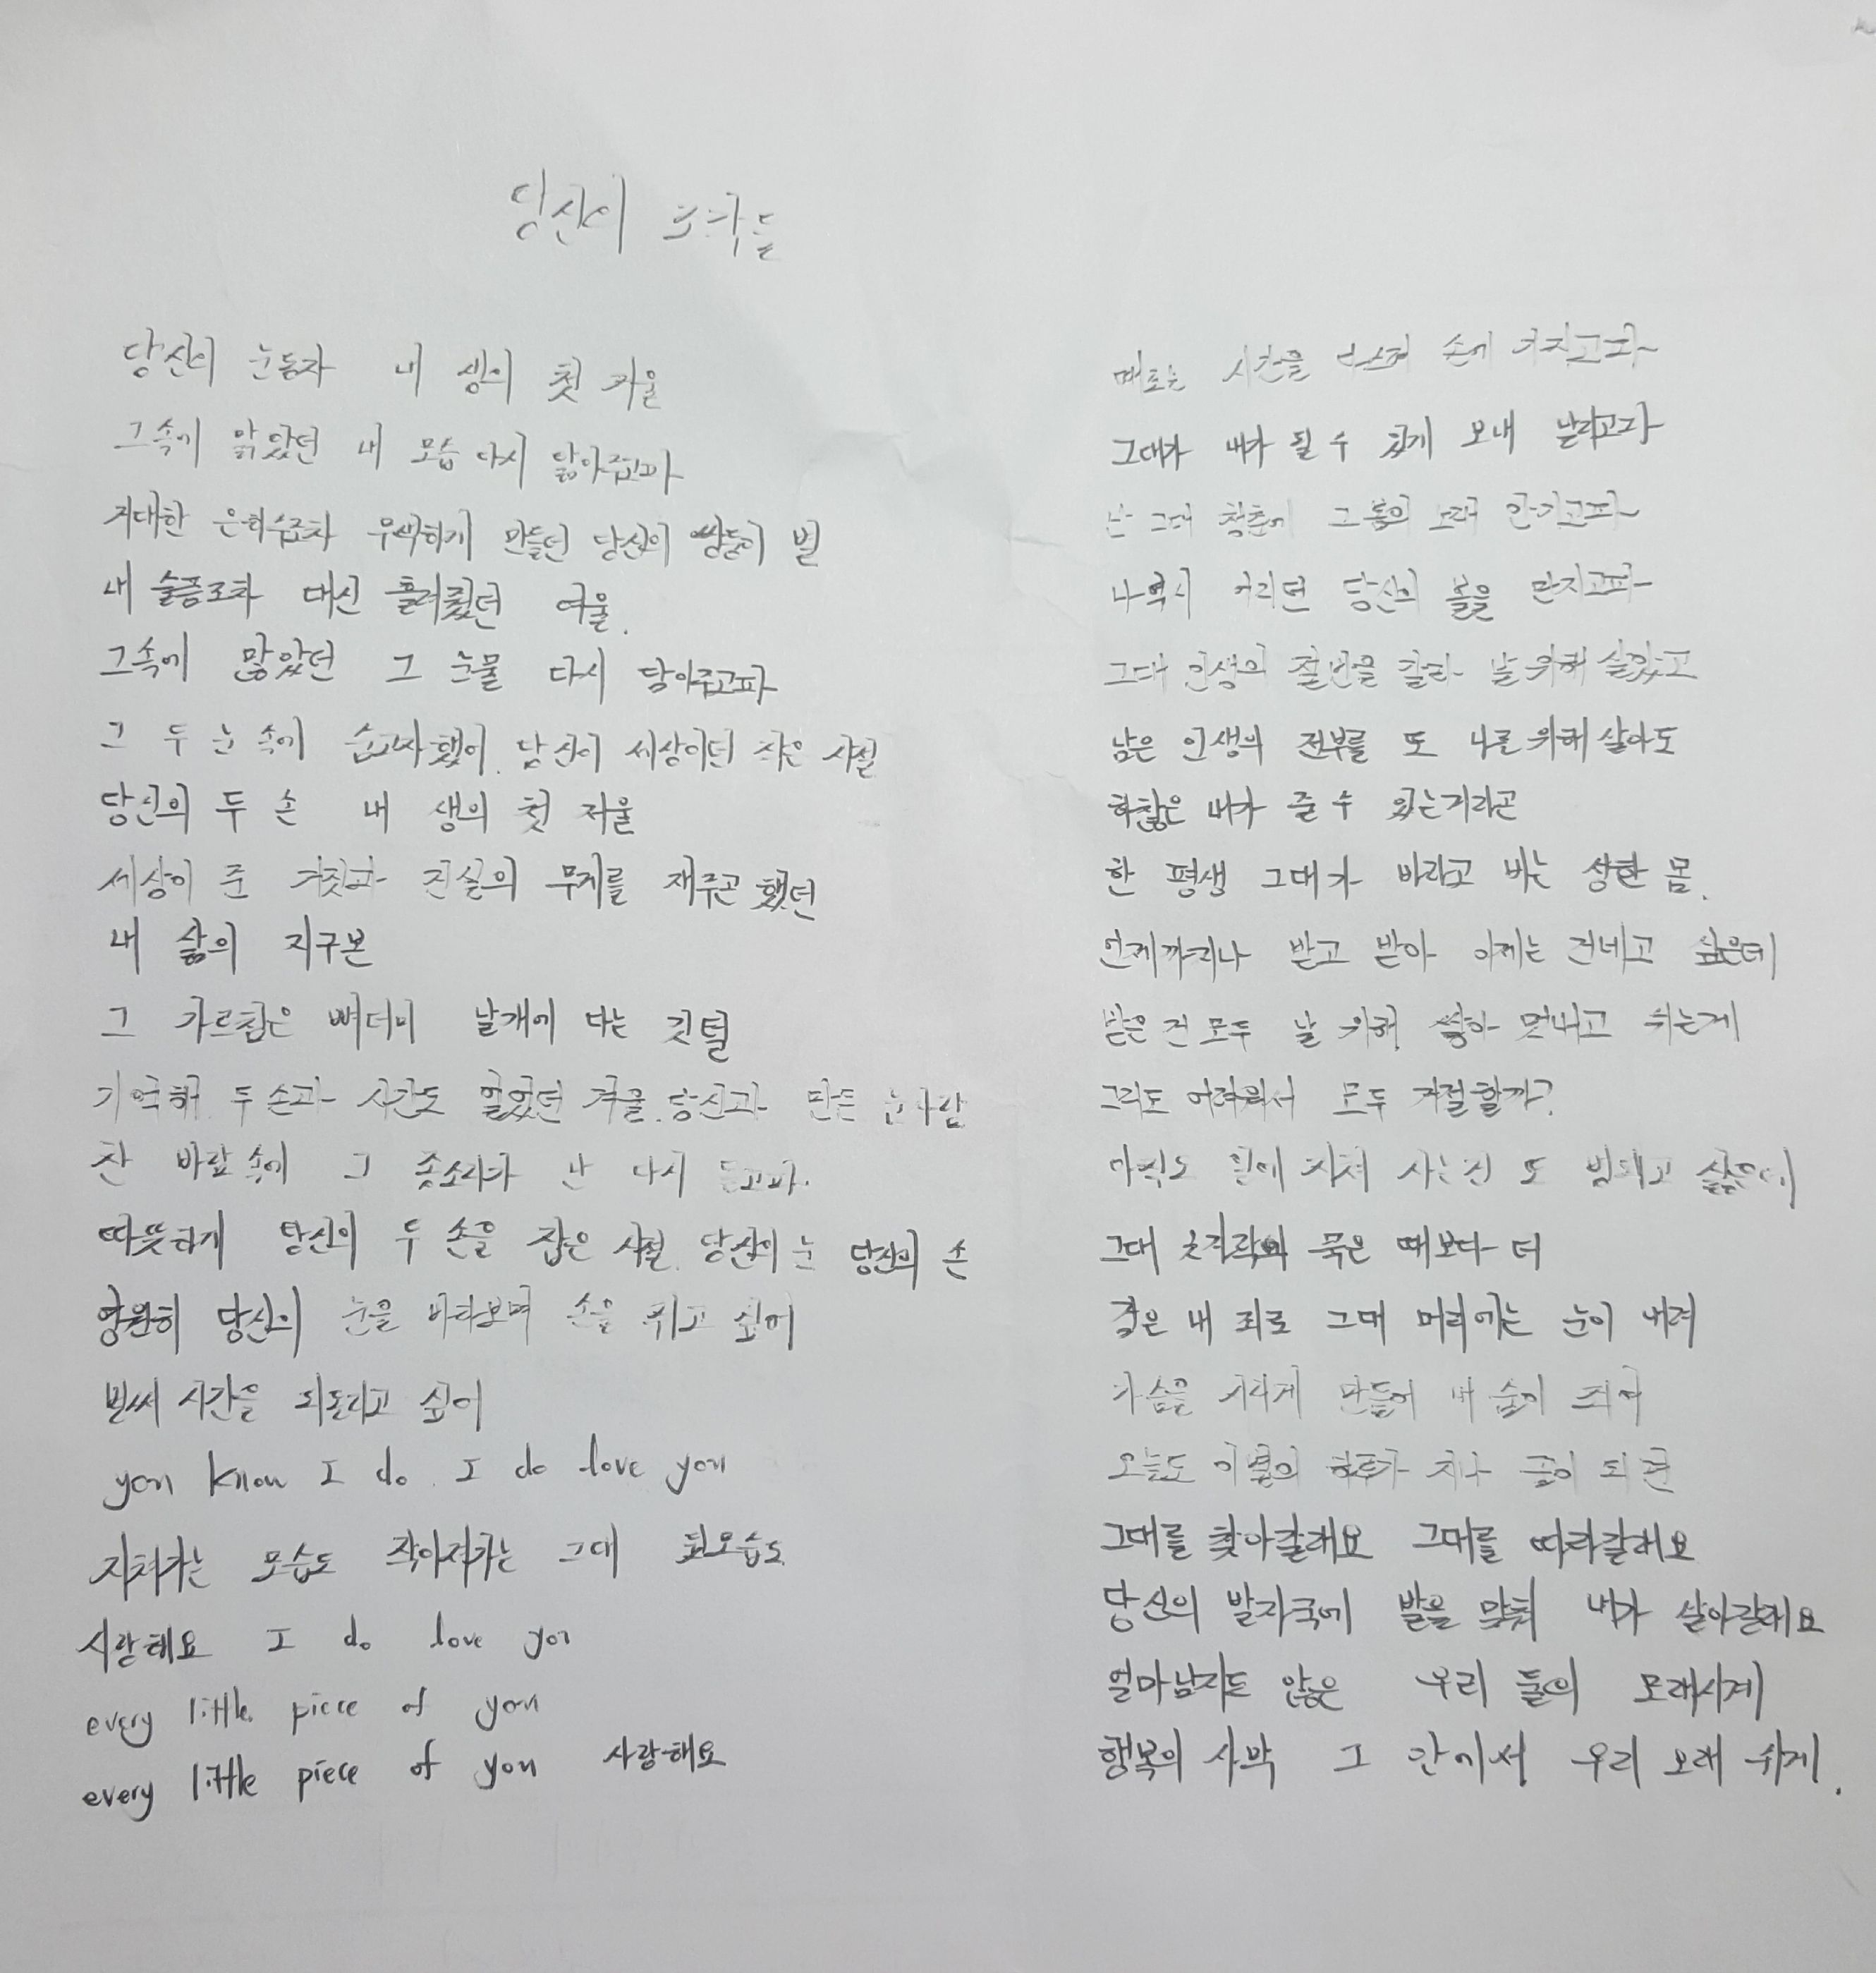 당신의 조각들
당신의 눈동자 내 생의 첫 거울
그속에 맑았던 내 모습 다시 닮아주고파
거대한 은하수조차 무색하게 만들던 당신의 쌍둥이 별
내 슬픔조차 대신 흘려줬던 여울.
그속에 많았던 그 눈물 다시 담아주고파
그 두 눈 속에 숨고자했어. 당신이 세상이던 작은 시절
당신의 두 손 내 생의 첫 저울
세상이 준 거짓과 진실의 무게를 재주곤 했던
내 삶의 지구본
그 가르침은 뼈더미 날개에 다는 깃털
기억해. 두 손과 시간도 얼었던 겨울. 당신과 만든 눈사람
찬 바람 속에 그 종소리가 난 다시 듣고파.
따뜻하게 당신의 두 손을 잡은 시절. 당신의 눈 당신의 손
영원히 당신의 눈을 바라보며 손을 쥐고 싶어
벌써 시간을 되돌리고 싶어
you know I do. I do love you
지쳐가는 모습도 작아져가는 그대 뒷모습도
사랑해요 I do love you
every little piece of you
every little piece of you 사랑해요
때로는 시간을 손에 가지고파
그대가 내가 될 수 있게 보내 날리고파
난 그대 청춘에 그 봄의 노래 안기고파
나 역시 어리던 당신의 볼을 만지고파
그대 인생의 절반을 갈라 날 위해 살았고
남은 인생의 전부를 또 나를 위해 살아도
하찮은 내가 줄 수 있는거라곤
한 평생 그대가 바라고 비는 상한 몸.
언제까지나 받고 받아 이제는 건네고 싶은데
받은 건 모두 날 위해 쉬는게
그리도 어려워서 모두 거절할까?
아직도 일에 지쳐 사는건 또 싫은데
그대 옷자락의 묵은 때보다 더
검은 내 죄로 그대 머리에는 눈이 내려
가슴을 시리게 만들어 내 숨이 죄여
오늘도 이별의 하루가 지나 꿈이 되면
그대를 찾아갈래요 그대를 따라갈래요
당신의 발자국에 발을 맞춰 내가 살아갈래요
얼마남지도 않은 우리 둘의 모래시계
행복의 사막 그 안에서 우리 오래 쉬게.